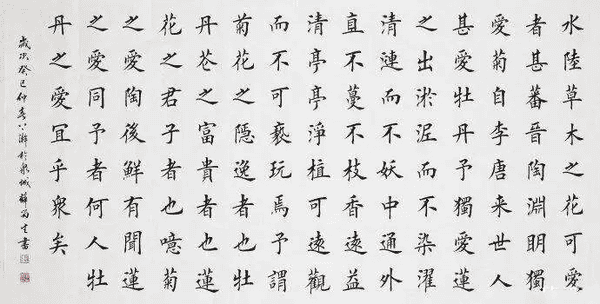 水陸草木之花可愛
者甚蕃晉陶淵明獨
愛菊自李唐来世人
甚愛牡丹予獨愛蓮
之出淤泥而不染濯
清漣而不妖中通外
直不蔓不枝香遠益
清亭亭淨植可遠觀
而不可褻玩焉予謂
菊花之隱逸者也牡
丹花之富貴者也蓮
花之君子者也噫菊
之愛陶後鮮有聞蓮
之愛同予者何人牡
丹之愛冝乎衆矣
歲次癸巳仲春於泉城書